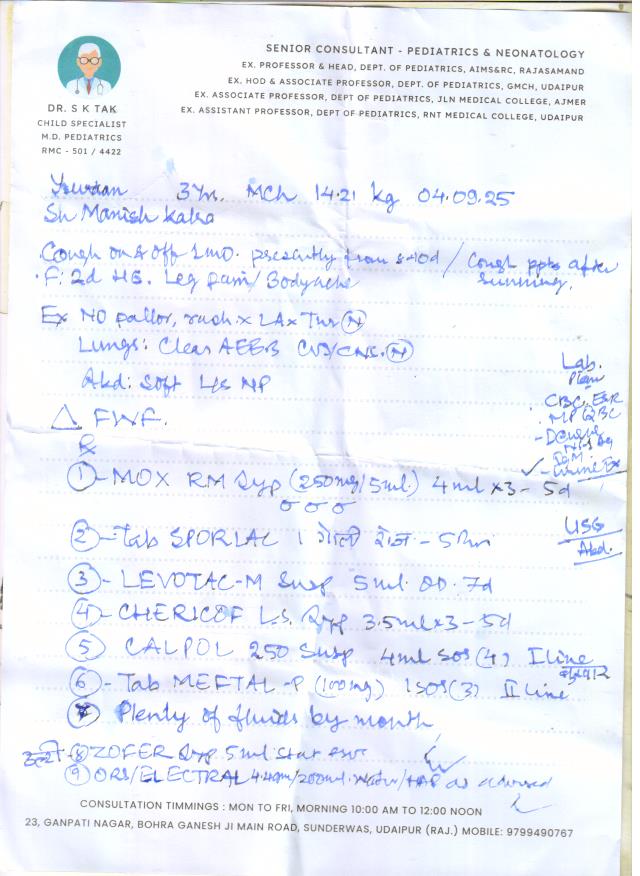 SENIOR CONSULTANT - PEDIATRICS & NEONATOLOGY
EX. PROFESSOR & HEAD, DEPT. OF PEDIATRICS, AIMS&RC, RAJASAMAND
EX. HOD & ASSOCIATE PROFESSOR, DEPT. OF PEDIATRICS, GMCH, UDAIPUR
EX. ASSOCIATE PROFESSOR, DEPT OF PEDIATRICS, JLN MEDICAL COLLEGE, AJMER
EX. ASSISTANT PROFESSOR, DEPT OF PEDIATRICS, RNT MEDICAL COLLEGE, UDAIPUR
DR. S K TAK
CHILD SPECIALIST
M.D. PEDIATRICS
RMC - 501 / 4422
3yr. MCh 14.21 kg 04.09.25
Sh Manish Kalra
Cough on & off 1mo. presently from 8-10d / Cough after
F: 2d HG. Leg pain / Bodyache
Ex NO pallor, rash x LAx (N)
Lungs: Clear AEEB CVS/CNS. (N)
Abd: Soft LS NP
Lab.
Plan
CBC, ESR
MP QBC
- Dengue
NS1 Ag
IgM
✓ - Urine Ex
USG
Abd.
△ FWF.
Rx
① - MOX RM Syp (250mg/5ml) 4ml x3 - 5d
② - Tab SPORLAC 1 गोली रोज - 5 दिन
③ - LEVOTAC-M Susp 5ml. OD. 7d
④ - CHERICOF L.S. Syp 3.5ml x3 - 5d
⑤ CALPOL 250 Susp 4ml SOS (4) I line
बुखार
⑥ - Tab MEFTAL-P (100mg) 1 SOS (3) II line
⑦ Plenty of fluids by mouth
उल्टी ⑧ ZOFER Syp 5ml stat
⑨ ORS/ELECTRAL 4.4gm/200ml. water as advised
CONSULTATION TIMMINGS : MON TO FRI, MORNING 10:00 AM TO 12:00 NOON
23, GANPATI NAGAR, BOHRA GANESH JI MAIN ROAD, SUNDERWAS, UDAIPUR (RAJ.) MOBILE: 9799490767